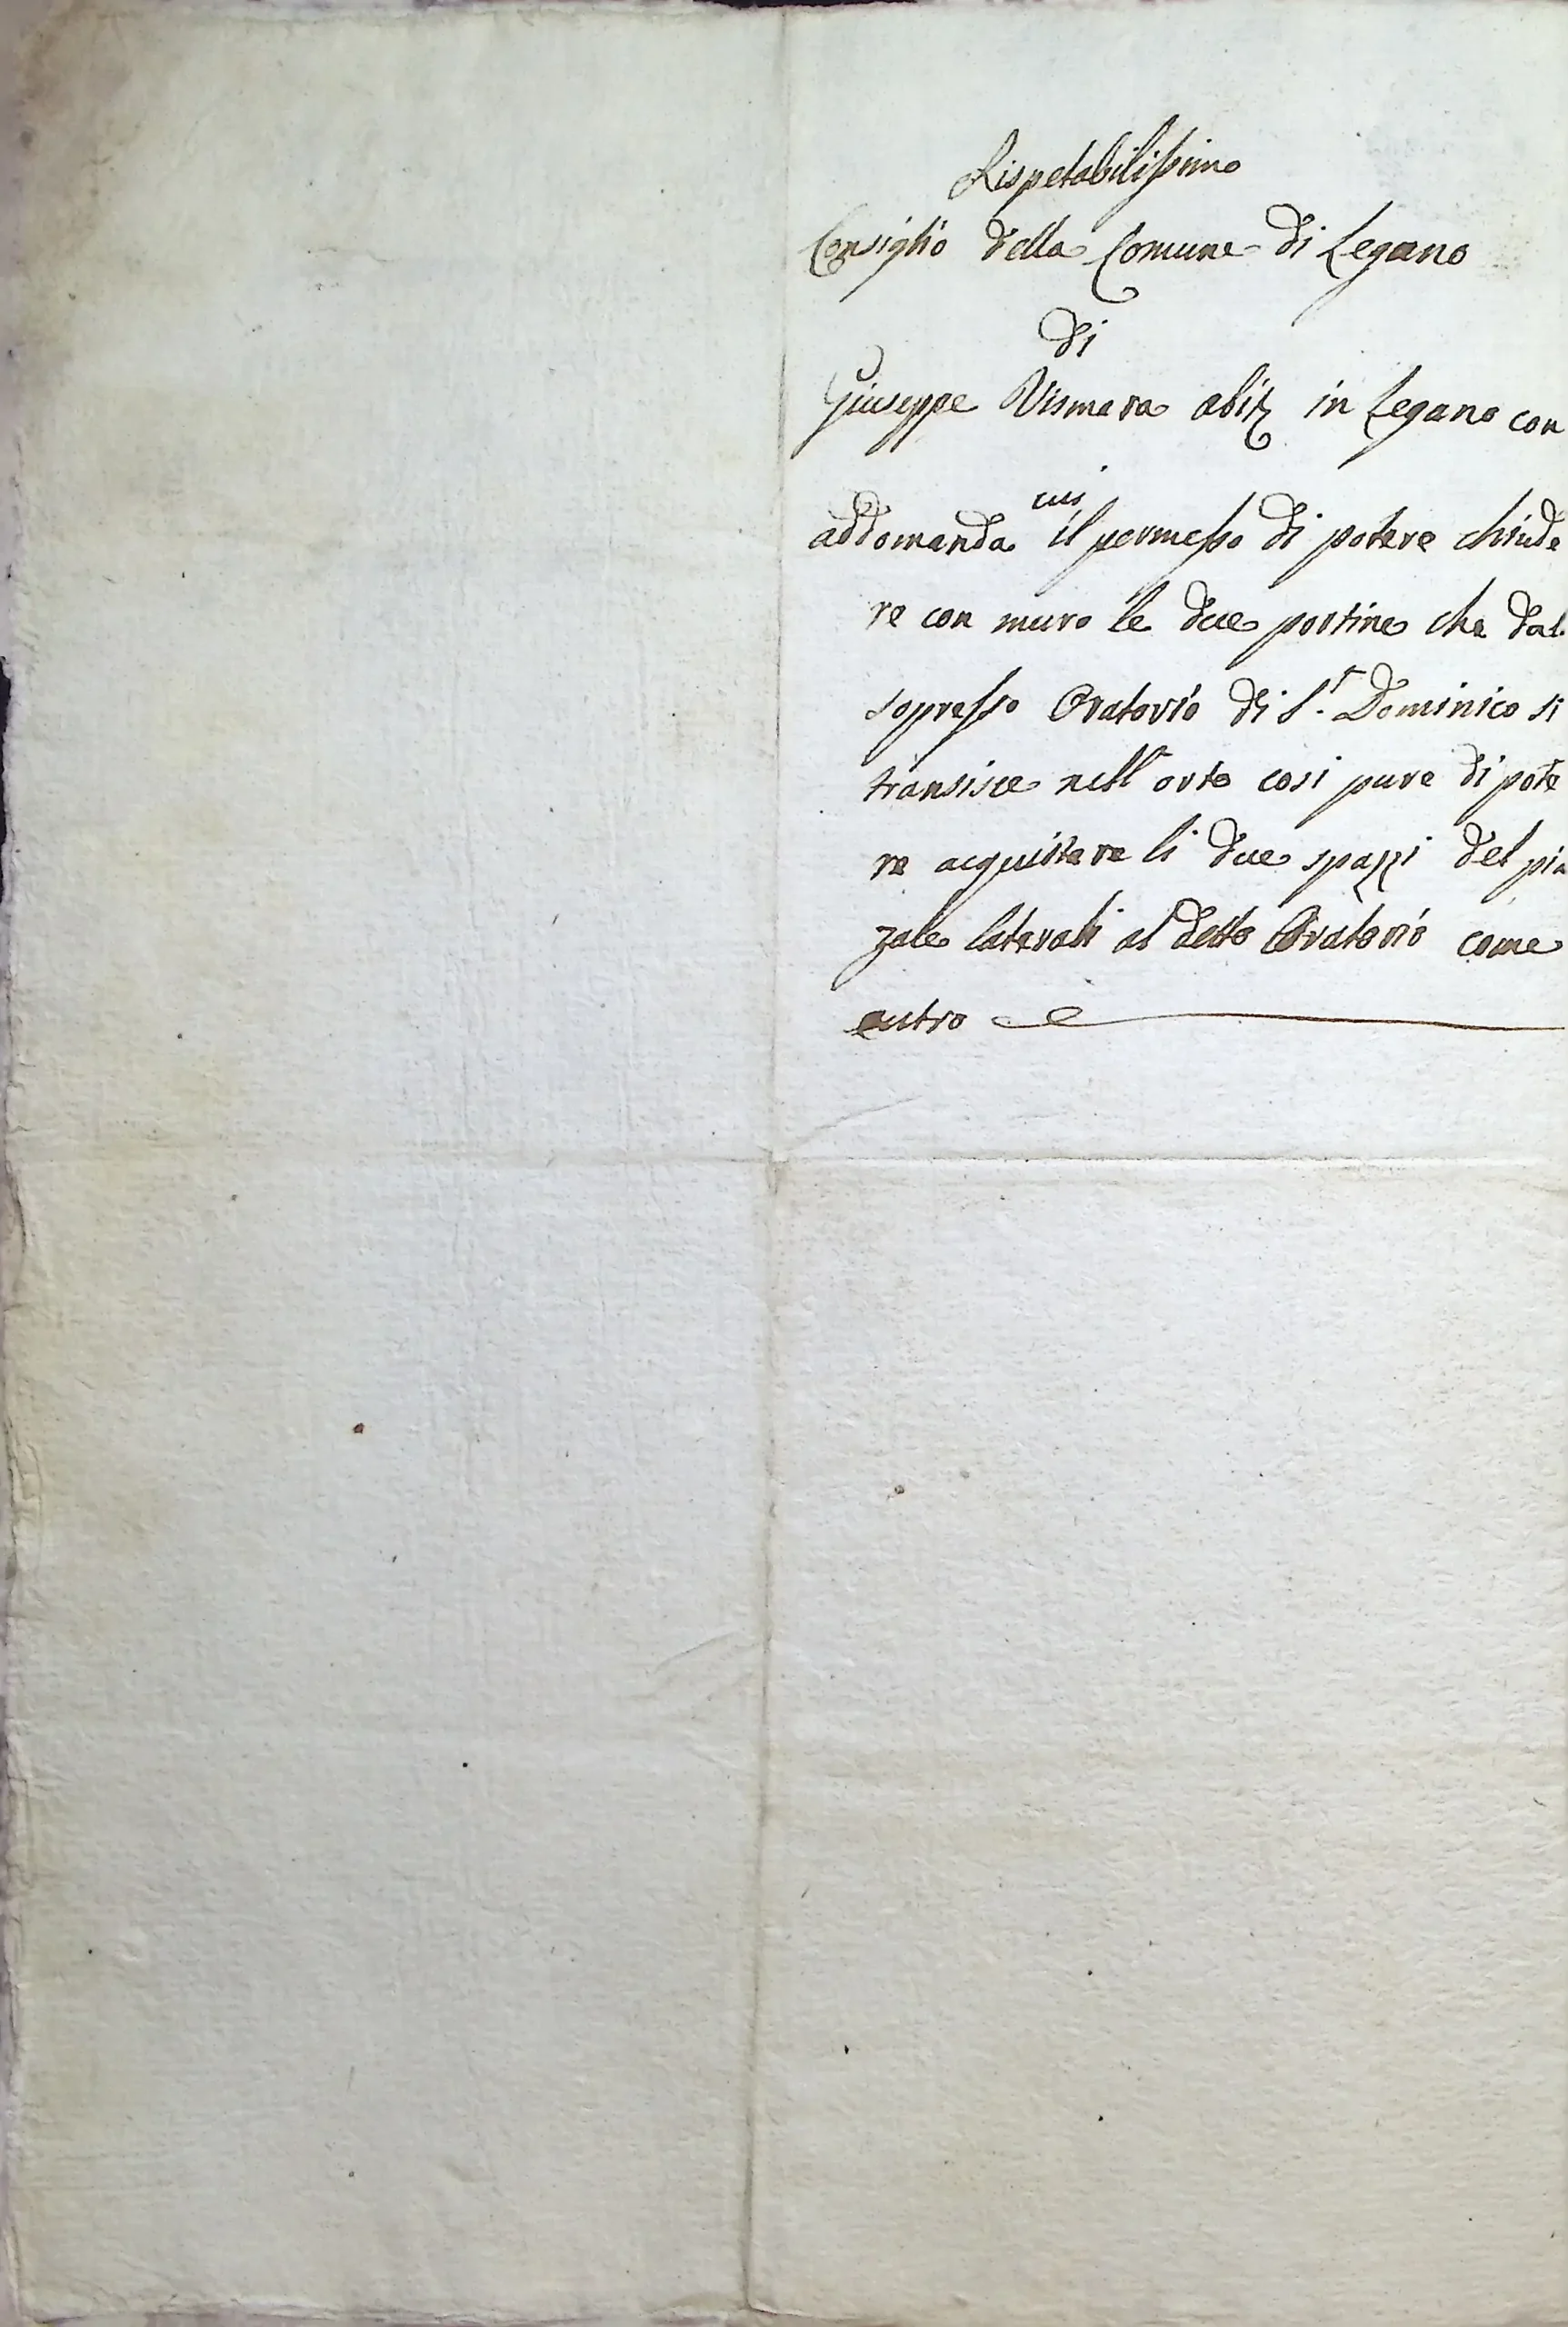 Rispetabilissimo
Consiglio della Comune di Legano
di
Giuseppe Vismara abit. in Legano con
cui
addomanda il permesso di potere chiude
re con muro le due portine che dal
sopresso Oratorio di S.t Dominico si
transisce nell orto cosi pure di pote
re acquistare li due spazzi del pia
zale laterali al detto Oratorio come
entro